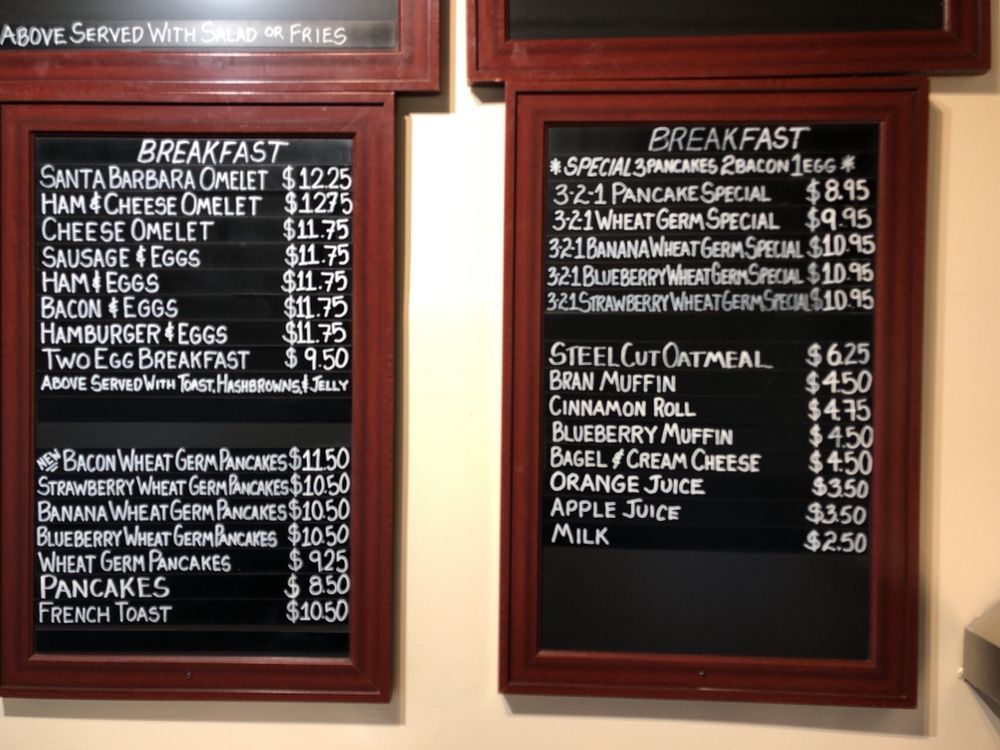 ABOVE SERVED WITH SALAD OR FRIES
BREAKFAST
SANTA BARBARA OMELET $12.25
HAM & CHEESE OMELET $12.75
CHEESE OMELET $11.75
SAUSAGE & EGGS $11.75
HAM & EGGS $11.75
BACON & EGGS $11.75
HAMBURGER & EGGS $11.75
TWO EGG BREAKFAST $9.50
ABOVE SERVED WITH TOAST, HASHBROWNS, & JELLY
NEW BACON WHEAT GERM PANCAKES $11.50
STRAWBERRY WHEAT GERM PANCAKES $10.50
BANANA WHEAT GERM PANCAKES $10.50
BLUEBERRY WHEAT GERM PANCAKES $10.50
WHEAT GERM PANCAKES $9.25
PANCAKES $8.50
FRENCH TOAST $10.50
BREAKFAST
* SPECIAL 3 PANCAKES 2 BACON 1 EGG *
3-2-1 PANCAKE SPECIAL $8.95
3-2-1 WHEAT GERM SPECIAL $9.95
3-2-1 BANANA WHEAT GERM SPECIAL $10.95
3-2-1 BLUEBERRY WHEAT GERM SPECIAL $10.95
3-2-1 STRAWBERRY WHEAT GERM SPECIAL $10.95
STEEL CUT OATMEAL $6.25
BRAN MUFFIN $4.50
CINNAMON ROLL $4.75
BLUEBERRY MUFFIN $4.50
BAGEL & CREAM CHEESE $4.50
ORANGE JUICE $3.50
APPLE JUICE $3.50
MILK $2.50